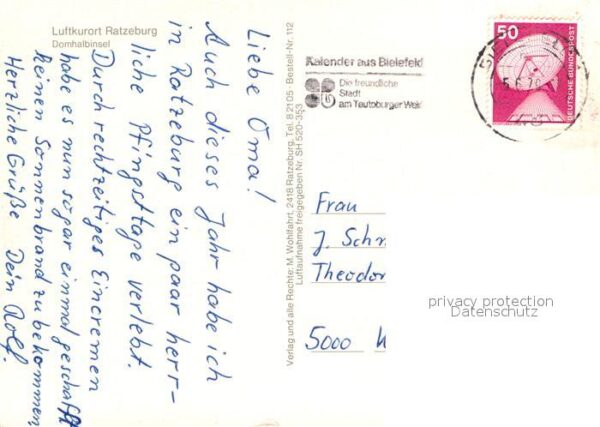 Luftkurort Ratzeburg
Domhalbinsel
Liebe Oma!
Auch dieses Jahr habe ich
in Ratzeburg ein paar herr-
liche Pfingsttage verlebt.
Durch rechtzeitiges Eincremen
habe es nun sogar einmal geschafft
keinen Sonnenbrand zu bekommen.
Herzliche Grüße Dein Rolf.
Verlag und alle Rechte: M. Wohlfahrt, 2418 Ratzeburg, Tel. 8 21 05 · Bestell-Nr. 112
Luftaufnahme freigegeben Nr. SH 520-353
Kalender aus Bielefeld
Die freundliche
Stadt
am Teutoburger Wald
50
DEUTSCHE BUNDESPOST
Frau
J. Schm
Theodor
5000 K
privacy protection
Datenschutz